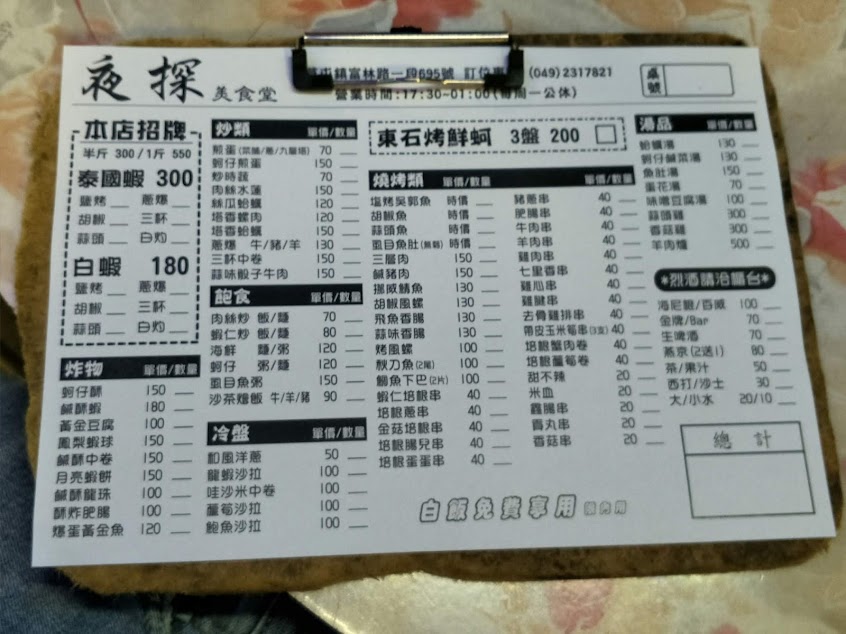 夜探 美食堂
鎮富林路一段695號 訂位專 (049)2317821
營業時間:17:30~01:00(每周一公休)
桌號
本店招牌
半斤 300/1斤 550
泰國蝦 300
鹽烤 __ 蔥爆 __
胡椒 __ 三杯 __
蒜頭 __ 白灼 __
白蝦 180
鹽烤 __ 蔥爆 __
胡椒 __ 三杯 __
蒜頭 __ 白灼 __
炸物 單價/數量
蚵仔酥 150 __
鹹酥蝦 180 __
黃金豆腐 100 __
鳳梨蝦球 150 __
鹹酥中卷 150 __
月亮蝦餅 150 __
鹹酥龍珠 100 __
酥炸肥腸 100 __
爆蛋黃金魚 120 __
炒類 單價/數量
煎蛋(菜脯/蔥/九層塔) 70 __
蚵仔煎蛋 150 __
炒時蔬 70 __
肉絲水蓮 150 __
絲瓜蛤蠣 120 __
塔香螺肉 120 __
塔香蛤蠣 150 __
蔥爆 牛/豬/羊 130 __
三杯中卷 150 __
蒜味骰子牛肉 150 __
飽食 單價/數量
肉絲炒 飯/麵 70 __
蝦仁炒 飯/麵 80 __
海鮮 麵/粥 120 __
蚵仔 粥/麵 120 __
虱目魚粥 150 __
沙茶燴飯 牛/羊/豬 90 __
冷盤 單價/數量
和風洋蔥 50 __
龍蝦沙拉 100 __
哇沙米中卷 100 __
蘆筍沙拉 100 __
鮑魚沙拉 100 __
東石烤鮮蚵 3盤 200 □
燒烤類 單價/數量 單價/數量
塩烤吳郭魚 時價 __
胡椒魚 時價 __
蒜頭魚 時價 __
虱目魚肚(無刺) 時價 __
三層肉 150 __
鹹豬肉 150 __
挪威鯖魚 130 __
胡椒風螺 130 __
飛魚香腸 130 __
蒜味香腸 130 __
烤風螺 100 __
秋刀魚(2尾) 100 __
鯛魚下巴(2片) 100 __
蝦仁培根串 40 __
培根蔥串 40 __
金菇培根串 40 __
培根腸兒串 40 __
培根蛋蛋串 40 __
豬蔥串 40 __
肥腸串 40 __
牛肉串 40 __
羊肉串 40 __
雞肉串 40 __
七里香串 40 __
雞心串 40 __
雞腱串 40 __
去骨雞排串 40 __
帶皮玉米筍串(3支) 40 __
培根蟹肉卷 40 __
培根蘆筍卷 40 __
甜不辣 20 __
米血 20 __
鑫腸串 20 __
貢丸串 20 __
香菇串 20 __
白飯免費享用
湯品 單價/數量
蛤蠣湯 130 __
蚵仔鹹菜湯 130 __
魚肚湯 150 __
蛋花湯 70 __
味噌豆腐湯 100 __
蒜頭雞 300 __
香菇雞 300 __
羊肉爐 500 __
*烈酒請洽櫃台*
海尼根/百威 100 __
金牌/Bar 70 __
生啤酒 70 __
燕京(2送1) 80 __
茶/果汁 50 __
西打/沙士 30 __
大/小水 20/10 __
總計